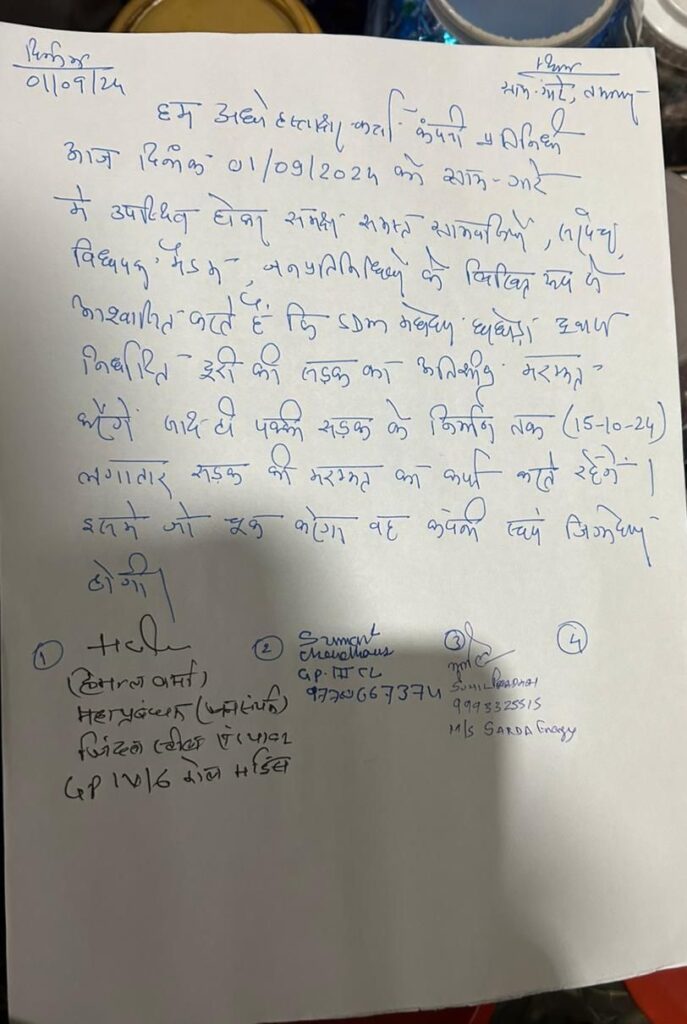 दिनांक
01/09/24
स्थान
ग्राम-गारे, तमनार
हम अधो हस्ताक्षर कर्ता कंपनी प्रतिनिधी
आज दिनांक 01/09/2024 को ग्राम-गारे
में उपस्थित होकर समक्ष समस्त ग्रामवासियों,
विधायक मैडम, जनप्रतिनिधियों के लिखित रूप से
आश्वासित करते हैं कि SDM महोदय द्वारा
निर्धारित दूरी की सड़क का अतिशीघ्र मरम्मत
करेंगे साथ ही पक्की सड़क के निर्माण तक (15-10-24)
लगातार सड़क की मरम्मत का कार्य करते रहेंगें।
इसमें जो चूक करेगा वह कंपनी स्वयं जिम्मेदार
होगी।
①
(हिमान्त वर्मा)
महाप्रबंधक (जनसंपर्क)
जिंदल स्टील एंड पावर
GP IV/6 कोल माइंस
② Sumant
Choudhary
GP-III CL
③
Sunil Pradhan
9993325515
M/S SARDA Energy
④